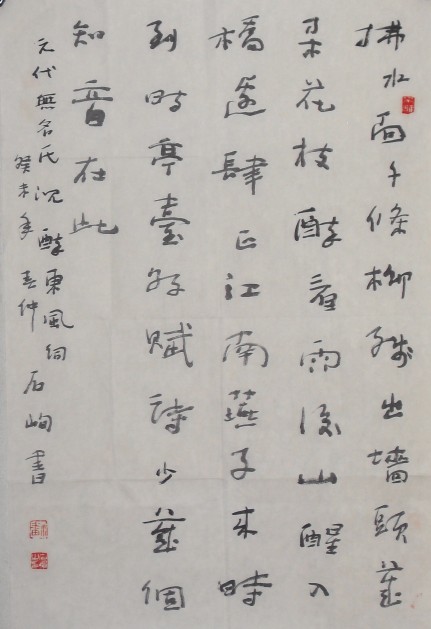 拂水面千條柳綫出墻頭幾
朵花枝醉看雨後山醒入
橋邊肆正江南燕子來時
到時亭臺好賦詩少幾個
知音在此
元代無名氏沉醉東風詞
癸未年春仲石峋書